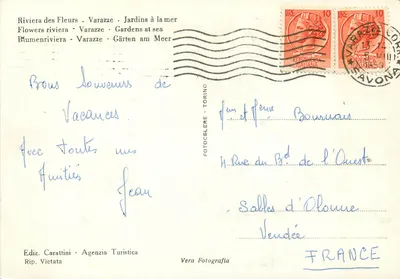 Riviera des Fleurs - Varazze - Jardins à la mer
Flowers riviera - Varazze - Gardens at sea
Blumenriviera - Varazze - Gärten am Meer
Bons Souvenirs de
Vacances
Avec toutes mes
Amitiés
Jean
FOTOCELERE - TORINO
10
10
VARAZZE
SAVONA
Mr et Mme
4 Rue du Bd de l'Ouest
Salles d'Olonne
Vendée
FRANCE
Ediz. Carattini - Agenzia Turistica
Rip. Vietata
Vera Fotografia